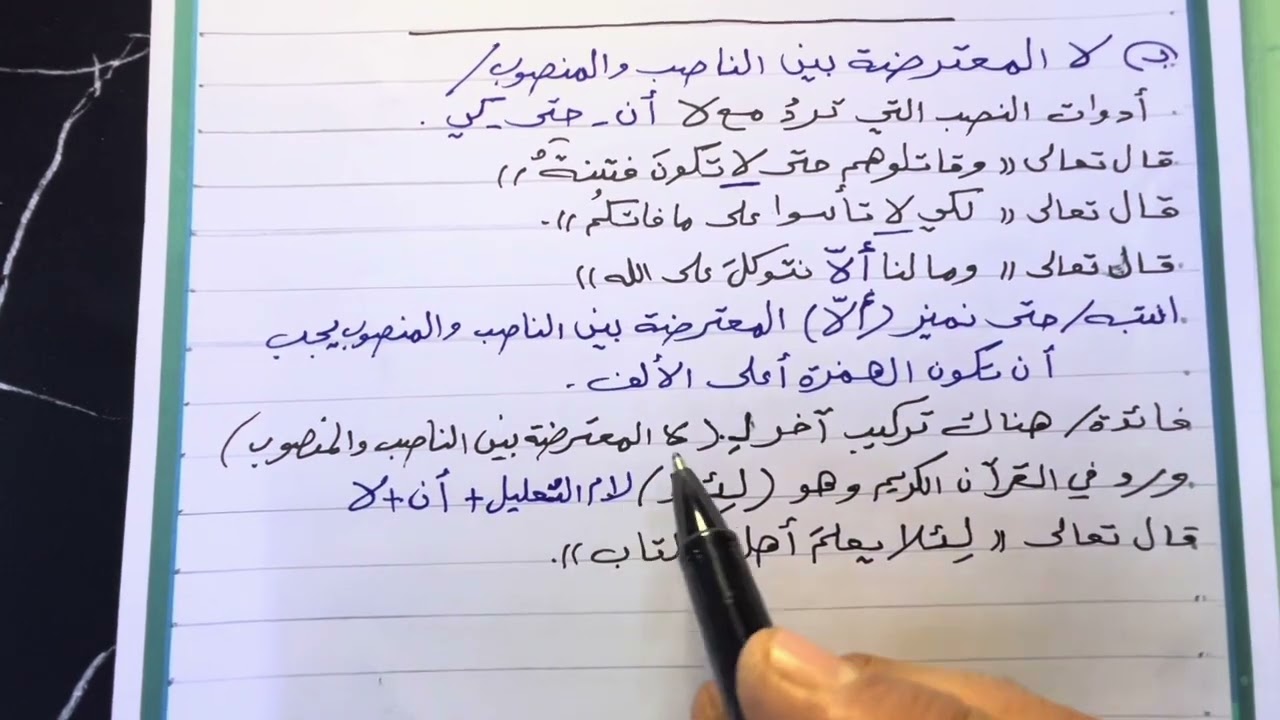 ب) لا المعترضة بين الناصب والمنصوب/
أدوات النصب التي تردُ مع لا أن - حتى - كي .
قال تعالى (( وقاتلوهم حتى لا تكونَ فتنةٌ ))
قال تعالى (( لكي لا تأسوا على ما فاتكُم )).
قال تعالى (( وما لنا ألّا نتوكلَ على الله ))
انتبه/ حتى نميز (ألّا) المعترضة بين الناصب والمنصوب يجب
أن تكون الهمزة أعلى الألف .
فائدة/ هناك تركيب آخر لـِ (لا المعترضة بين الناصب والمنصوب)
ورد في القرآن الكريم وهو ( ) لام التعليل + أن + لا
قال تعالى (( لِئلا يعلمَ )).